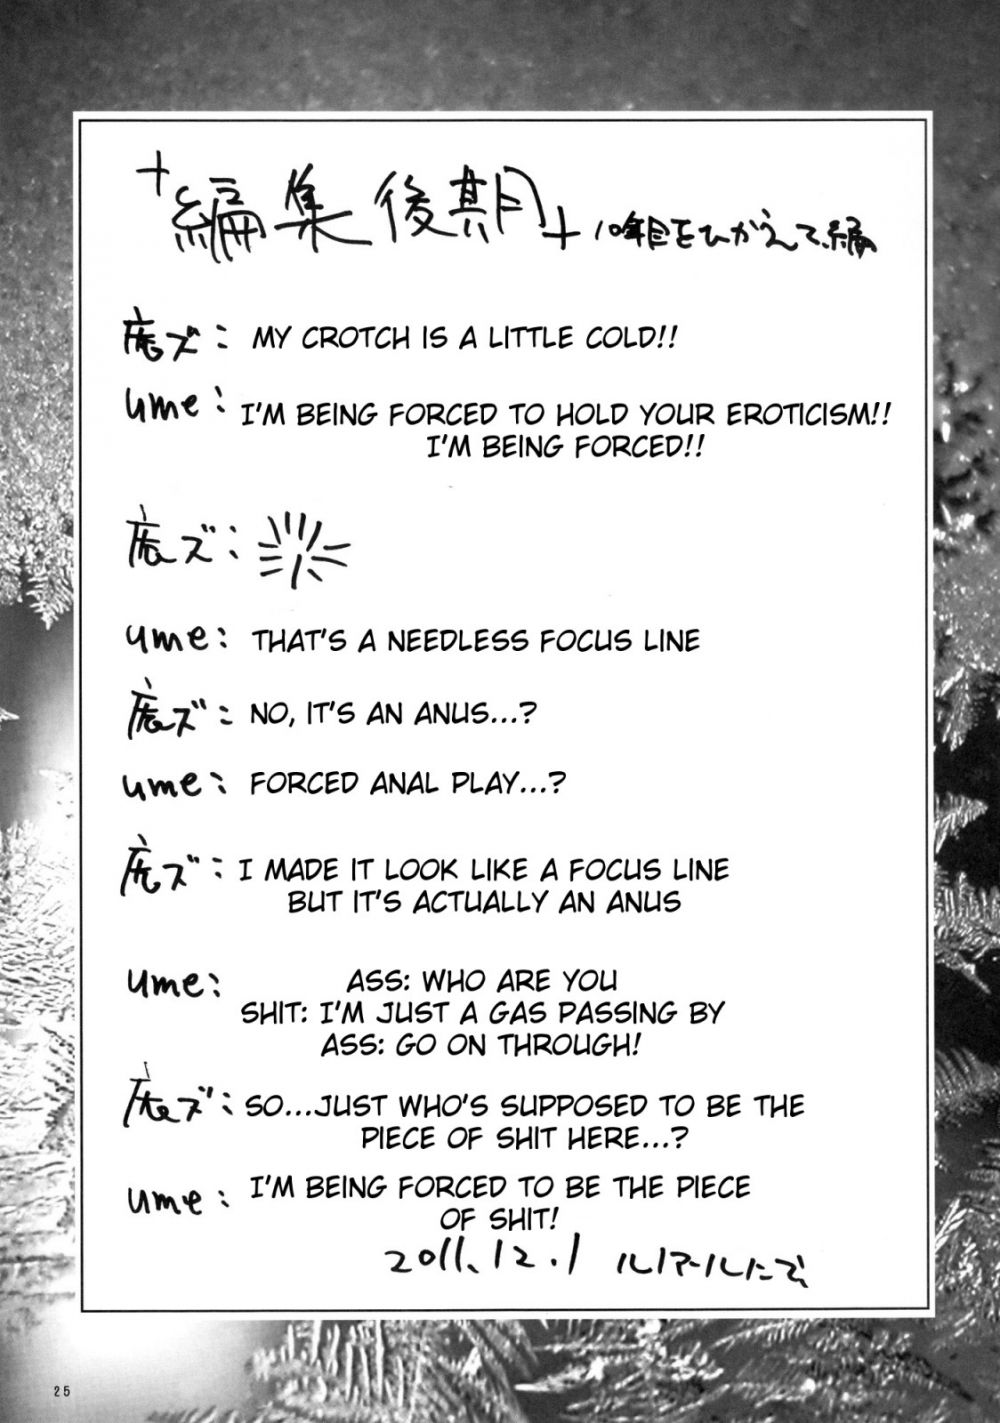 +編集後期+ 10年目をひかえて、編
底ズ: MY CROTCH IS A LITTLE COLD!!
ume: I'M BEING FORCED TO HOLD YOUR EROTICISM!!
I'M BEING FORCED!!
底ズ:
ume: THAT'S A NEEDLESS FOCUS LINE
底ズ: NO, IT'S AN ANUS...?
ume: FORCED ANAL PLAY...?
底ズ: I MADE IT LOOK LIKE A FOCUS LINE
BUT IT'S ACTUALLY AN ANUS
ume: ASS: WHO ARE YOU
SHIT: I'M JUST A GAS PASSING BY
ASS: GO ON THROUGH!
底ズ: SO...JUST WHO'S SUPPOSED TO BE THE
PIECE OF SHIT HERE...?
ume: I'M BEING FORCED TO BE THE PIECE
OF SHIT!
2011.12.1 ルノアールにて、
25